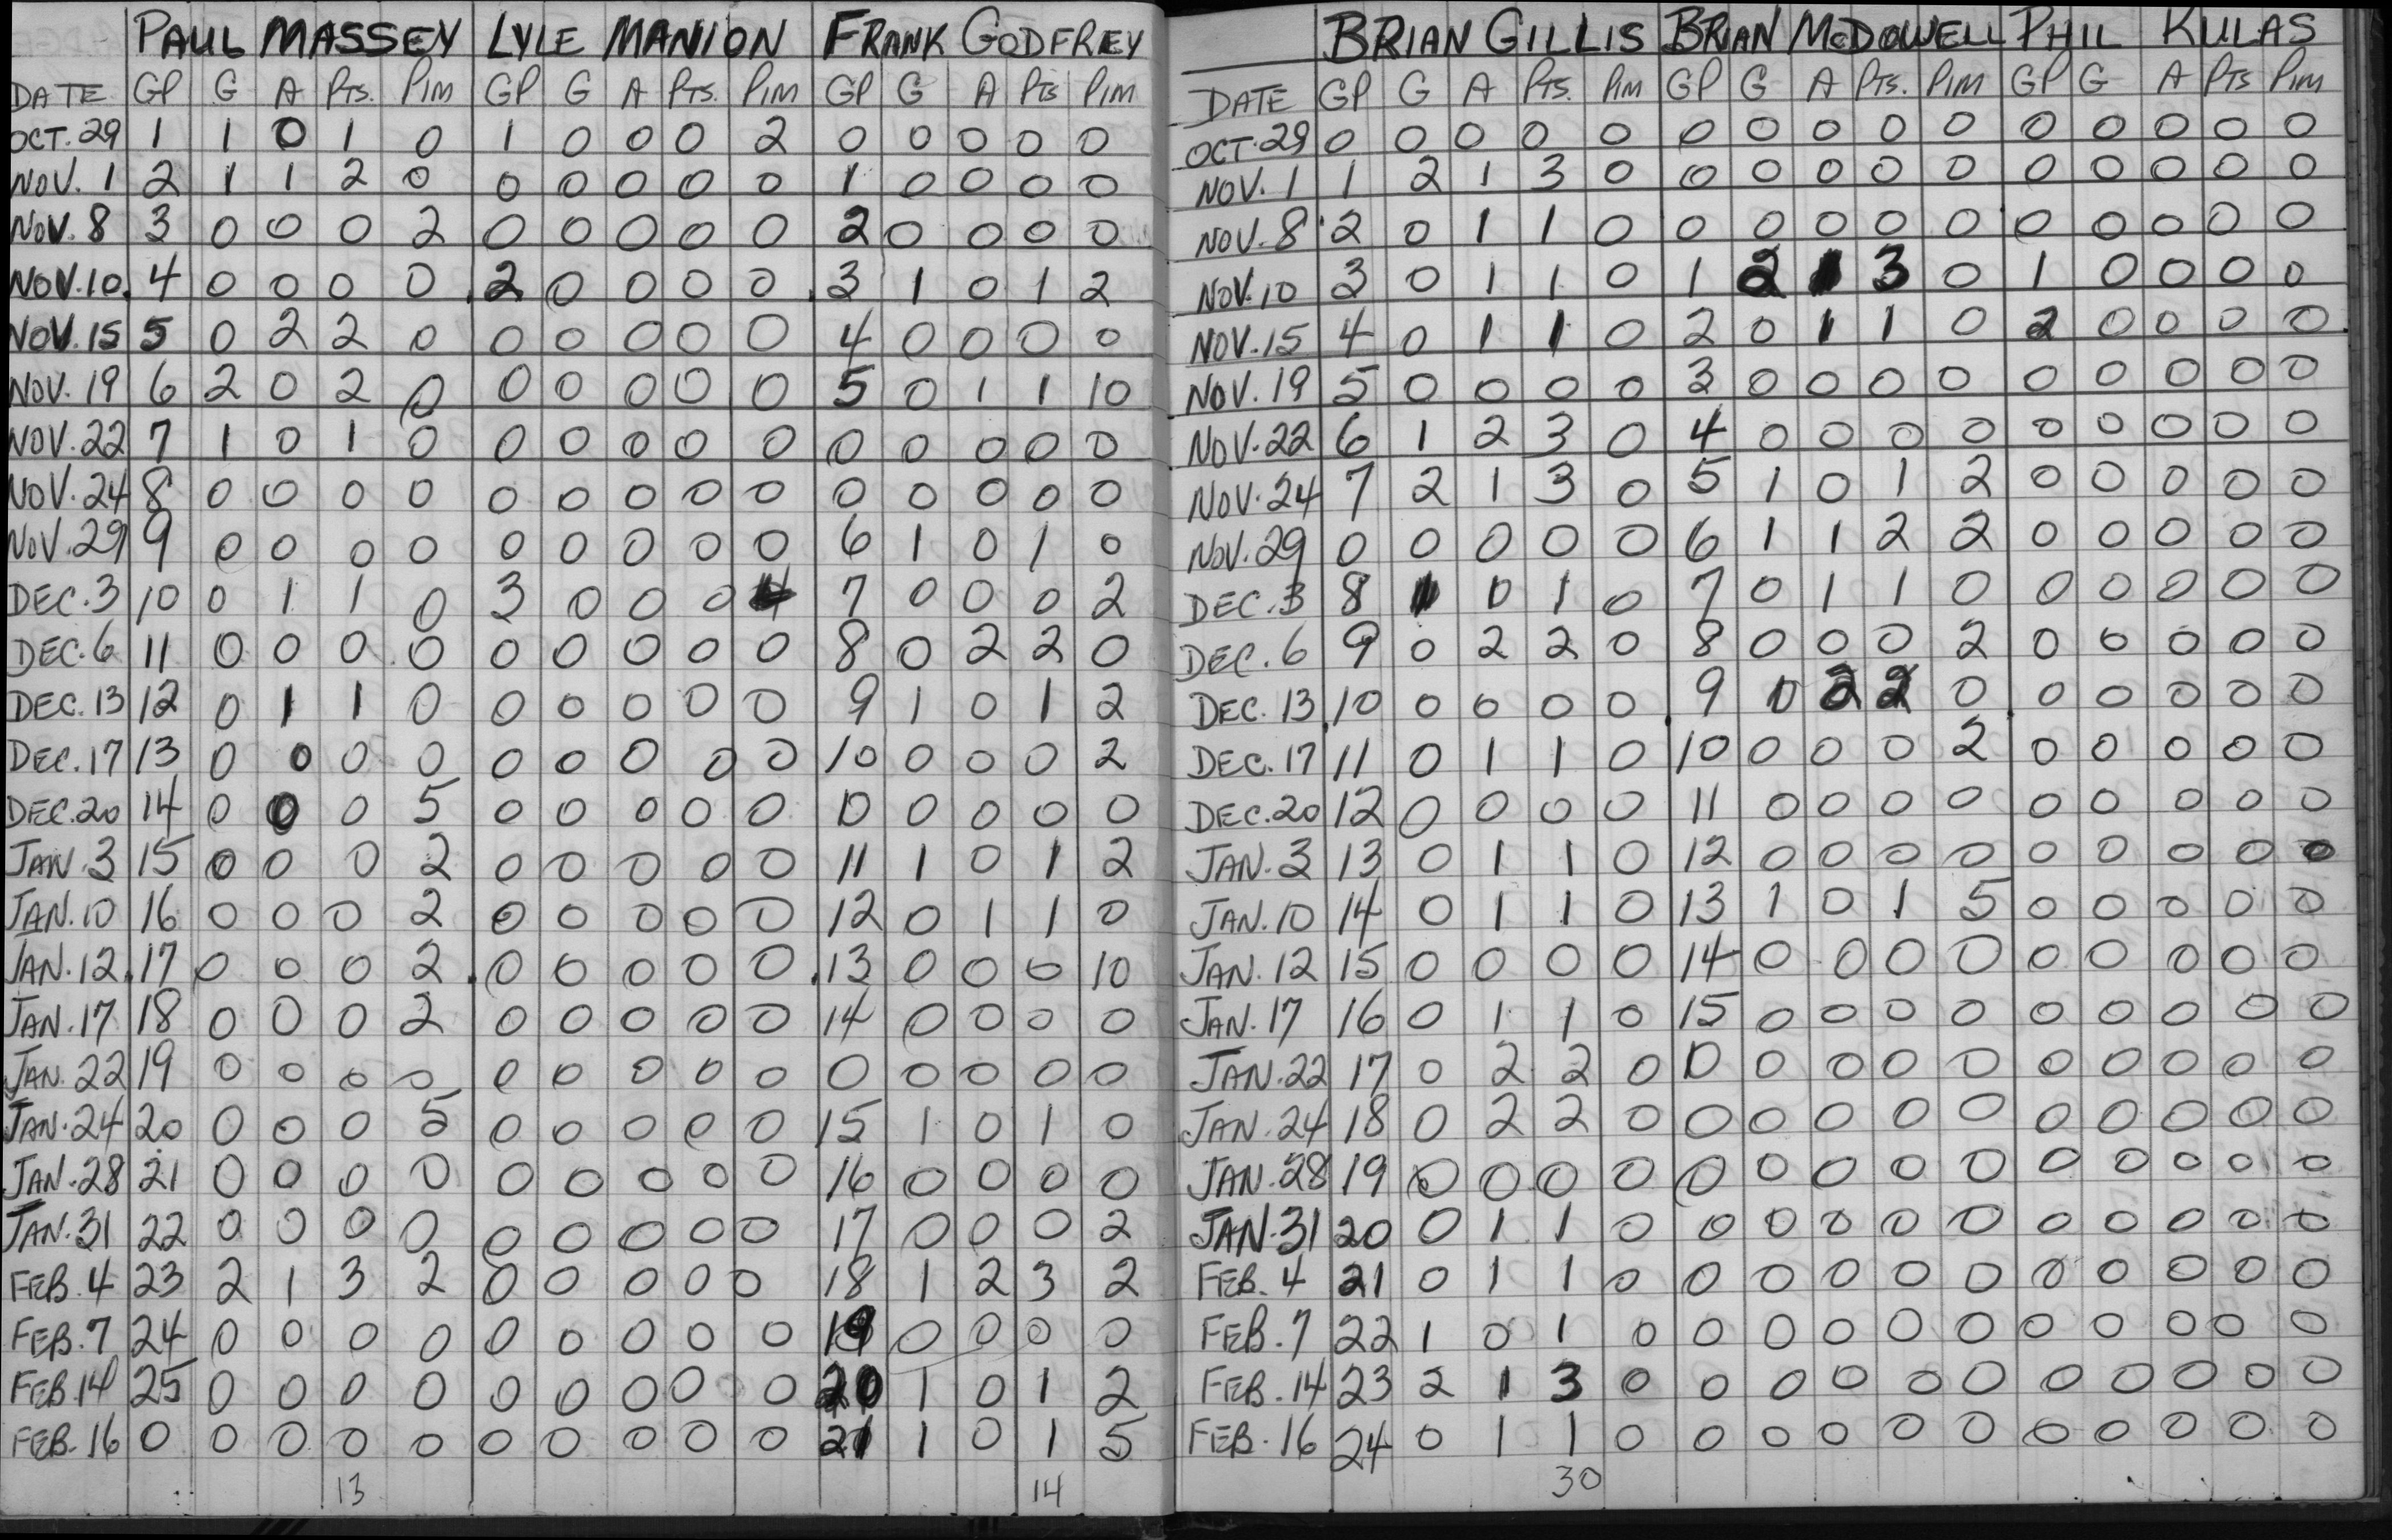 PAUL MASSEY LYLE MANION FRANK GODFREY
DATE GP G A PTS. PIM GP G A PTS. PIM GP G A PTS PIM
OCT. 29 1 1 0 1 0 1 0 0 0 2 0 0 0 0 0
NOV. 1 2 1 1 2 0 0 0 0 0 0 1 0 0 0 0
NOV. 8 3 0 0 0 2 0 0 0 0 0 2 0 0 0 0
NOV. 10. 4 0 0 0 0 2 0 0 0 0 3 1 0 1 2
NOV. 15 5 0 2 2 0 0 0 0 0 0 4 0 0 0 0
NOV. 19 6 2 0 2 0 0 0 0 0 0 5 0 1 1 10
NOV. 22 7 1 0 1 0 0 0 0 0 0 0 0 0 0 0
NOV. 24 8 0 0 0 0 0 0 0 0 0 0 0 0 0 0
NOV. 29 9 0 0 0 0 0 0 0 0 0 6 1 0 1 0
DEC. 3 10 0 1 1 0 3 0 0 0 4 7 0 0 0 2
DEC. 6 11 0 0 0 0 0 0 0 0 0 8 0 2 2 0
DEC. 13 12 0 1 1 0 0 0 0 0 0 9 1 0 1 2
DEC. 17 13 0 0 0 0 0 0 0 0 0 10 0 0 0 2
DEC. 20 14 0 0 0 5 0 0 0 0 0 0 0 0 0 0
JAN. 3 15 0 0 0 2 0 0 0 0 0 11 1 0 1 2
JAN. 10 16 0 0 0 2 0 0 0 0 0 12 0 1 1 0
JAN. 12 17 0 0 0 2 0 0 0 0 0 13 0 0 0 10
JAN. 17 18 0 0 0 2 0 0 0 0 0 14 0 0 0 0
JAN. 22 19 0 0 0 0 0 0 0 0 0 0 0 0 0 0
JAN. 24 20 0 0 0 5 0 0 0 0 0 15 1 0 1 0
JAN. 28 21 0 0 0 0 0 0 0 0 0 16 0 0 0 0
JAN. 31 22 0 0 0 0 0 0 0 0 0 17 0 0 0 2
FEB. 4 23 2 1 3 2 0 0 0 0 0 18 1 2 3 2
FEB. 7 24 0 0 0 0 0 0 0 0 0 19 0 0 0 0
FEB. 14 25 0 0 0 0 0 0 0 0 0 20 1 0 1 2
FEB. 16 0 0 0 0 0 0 0 0 0 0 21 1 0 1 5
13 14
BRIAN GILLIS BRIAN McDOWELL PHIL KULAS
DATE GP G A PTS. PIM GP G A PTS. PIM GP G A PTS PIM
OCT. 29 0 0 0 0 0 0 0 0 0 0 0 0 0 0 0
NOV. 1 1 2 1 3 0 0 0 0 0 0 0 0 0 0 0
NOV. 8 2 0 1 1 0 0 0 0 0 0 0 0 0 0 0
NOV. 10 3 0 1 1 0 1 2 1 3 0 1 0 0 0 0
NOV. 15 4 0 1 1 0 2 0 1 1 0 2 0 0 0 0
NOV. 19 5 0 0 0 0 3 0 0 0 0 0 0 0 0 0
NOV. 22 6 1 2 3 0 4 0 0 0 0 0 0 0 0 0
NOV. 24 7 2 1 3 0 5 1 0 1 2 0 0 0 0 0
NOV. 29 0 0 0 0 0 6 1 1 2 2 0 0 0 0 0
DEC. 3 8 1 0 1 0 7 0 1 1 0 0 0 0 0 0
DEC. 6 9 0 2 2 0 8 0 0 0 2 0 0 0 0 0
DEC. 13 10 0 0 0 0 9 0 2 2 0 0 0 0 0 0
DEC. 17 11 0 1 1 0 10 0 0 0 2 0 0 0 0 0
DEC. 20 12 0 0 0 0 11 0 0 0 0 0 0 0 0 0
JAN. 3 13 0 1 1 0 12 0 0 0 0 0 0 0 0 0
JAN. 10 14 0 1 1 0 13 1 0 1 5 0 0 0 0 0
JAN. 12 15 0 0 0 0 14 0 0 0 0 0 0 0 0 0
JAN. 17 16 0 1 1 0 15 0 0 0 0 0 0 0 0 0
JAN. 22 17 0 2 2 0 0 0 0 0 0 0 0 0 0 0
JAN. 24 18 0 2 2 0 0 0 0 0 0 0 0 0 0 0
JAN. 28 19 0 0 0 0 0 0 0 0 0 0 0 0 0 0
JAN. 31 20 0 1 1 0 0 0 0 0 0 0 0 0 0 0
FEB. 4 21 0 1 1 0 0 0 0 0 0 0 0 0 0 0
FEB. 7 22 1 0 1 0 0 0 0 0 0 0 0 0 0 0
FEB. 14 23 2 1 3 0 0 0 0 0 0 0 0 0 0 0
FEB. 16 24 0 1 1 0 0 0 0 0 0 0 0 0 0 0
30